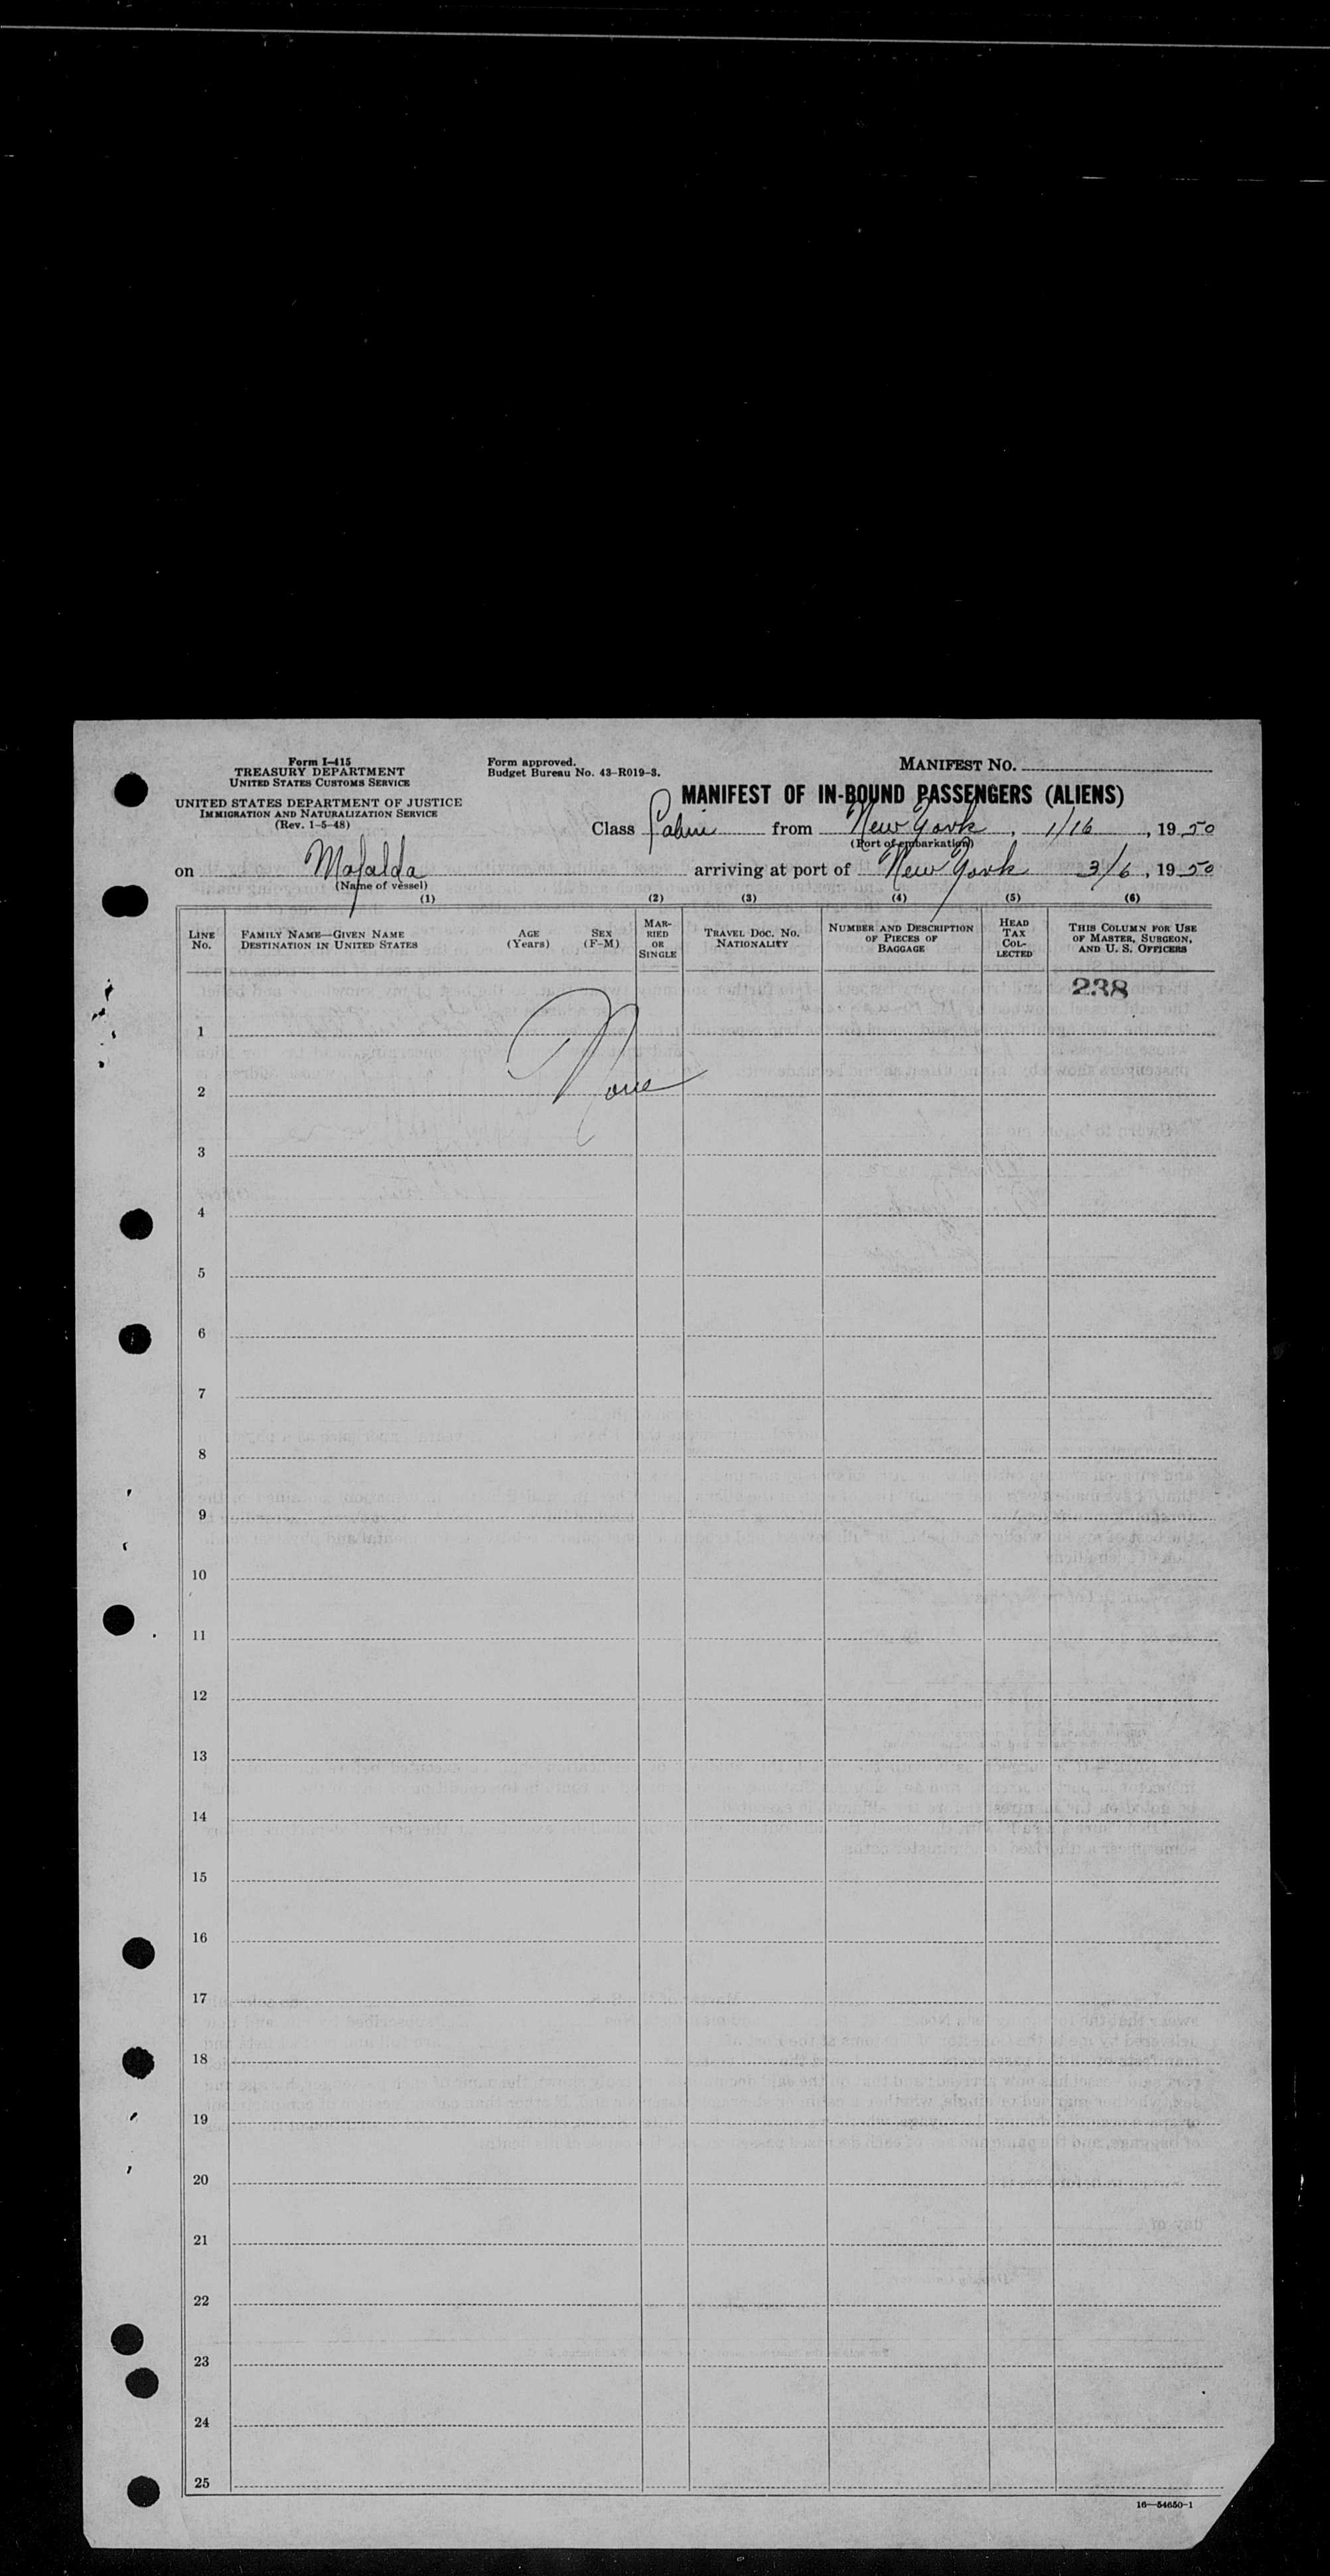 Form I-415
TREASURY DEPARTMENT
UNITED STATES CUSTOMS SERVICE
UNITED STATES DEPARTMENT OF JUSTICE
IMMIGRATION AND NATURALIZATION SERVICE
(Rev. 1-5-48)
Form approved.
Budget Bureau No. 43-R019-3.
MANIFEST NO.
MANIFEST OF IN-BOUND PASSENGERS (ALIENS)
Class Cabin from New York, 1/16, 19 50
(Port of embarkation)
on Mafalda arriving at port of New York 3/6, 19 50
(Name of vessel)
(1) (2) (3) (4) (5) (6)
LINE No.
FAMILY NAME—GIVEN NAME
DESTINATION IN UNITED STATES
AGE (Years)
SEX (F-M)
MARRIED OR SINGLE
TRAVEL DOC. NO. NATIONALITY
NUMBER AND DESCRIPTION OF PIECES OF BAGGAGE
HEAD TAX COLLECTED
THIS COLUMN FOR USE OF MASTER, SURGEON, AND U. S. OFFICERS
238
1
None
2
3
4
5
6
7
8
9
10
11
12
13
14
15
16
17
18
19
20
21
22
23
24
25
16—54650-1